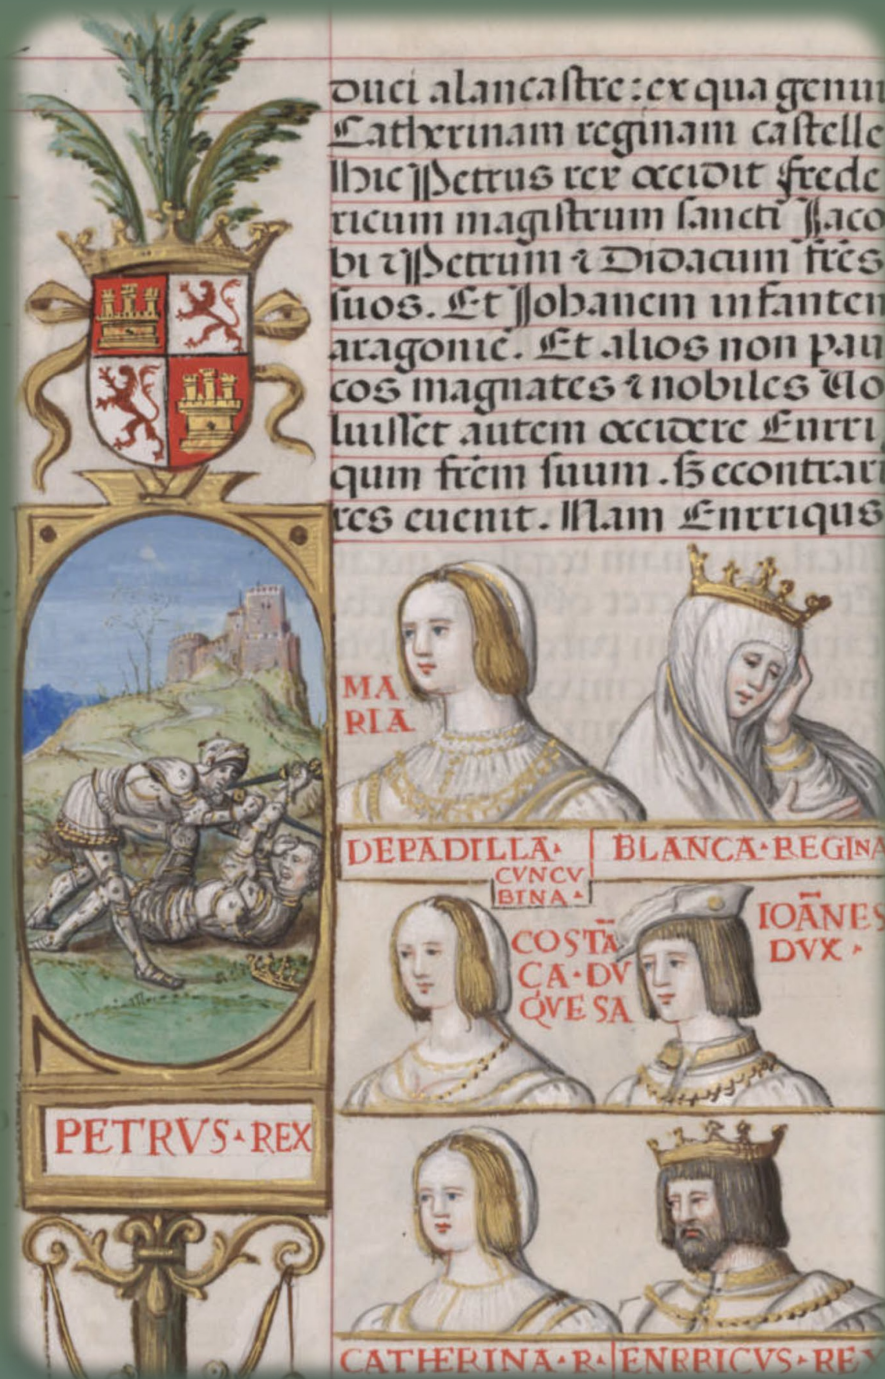 duci alancastre: ex qua genui
Catherinam reginam castelle
hic Petrus rex occidit frede
ricum magistrum sancti Jaco
bi ⁊ Petrum ⁊ Didacum fr̄es
suos. Et Johanem infantem
aragonie. Et alios non pau
cos magnates ⁊ nobiles Uo
luisset autem occidere Enrri
qum fr̄em suum. s̄ econtrari
res euenit. Nam Enrriqus
MA
RIA
DEPADILLA BLANCA REGINA
CVNCV
BINA
COSTĀ
CA·DV
QVESA
IOĀNES
DVX
PETRVS REX
CATHERINA·R· ENRRICVS·REX